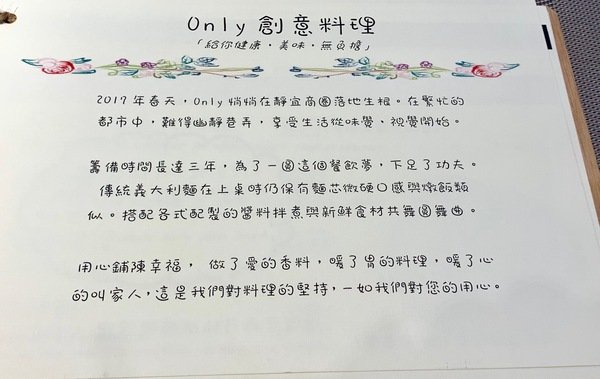 Only 創意料理
「給你健康・美味・無負擔」
2017年春天，Only 悄悄在靜宜商圈落地生根。在繁忙的
都市中，難得幽靜巷弄，享受生活從味覺、視覺開始。
籌備時間長達三年，為了一圓這個餐飲夢，下足了功夫。
傳統義大利麵在上桌時仍保有麵芯微硬口感與燉飯類
似。搭配各式配製的醬料拌煮與新鮮食材共舞圓舞曲。
用心鋪陳幸福， 做了愛的香料，暖了胃的料理，暖了心
的叫家人，這是我們對料理的堅持，一如我們對您的用心。